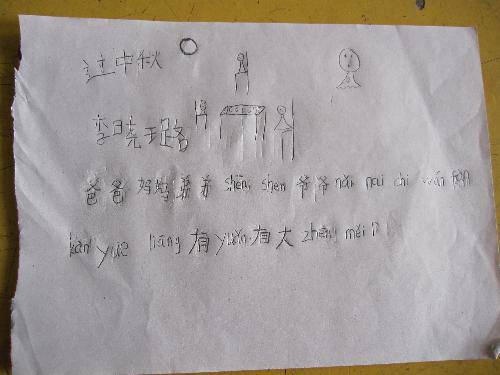 过中秋
李晓珞
爸爸妈妈弟弟 shěn shen 爷爷 nǎi nai chi wán fàn
kàn yuè liang 有 yuán 有大 zhēng měi